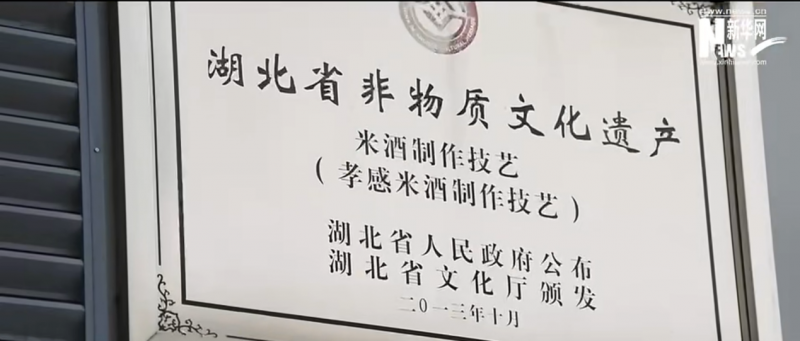 www.news.cn
新华网
NEWS
www.xinhuanet.com
湖北省非物质文化遗产
米酒制作技艺
（孝感米酒制作技艺）
湖北省人民政府公布
湖北省文化厅颁发
二〇一三年十月